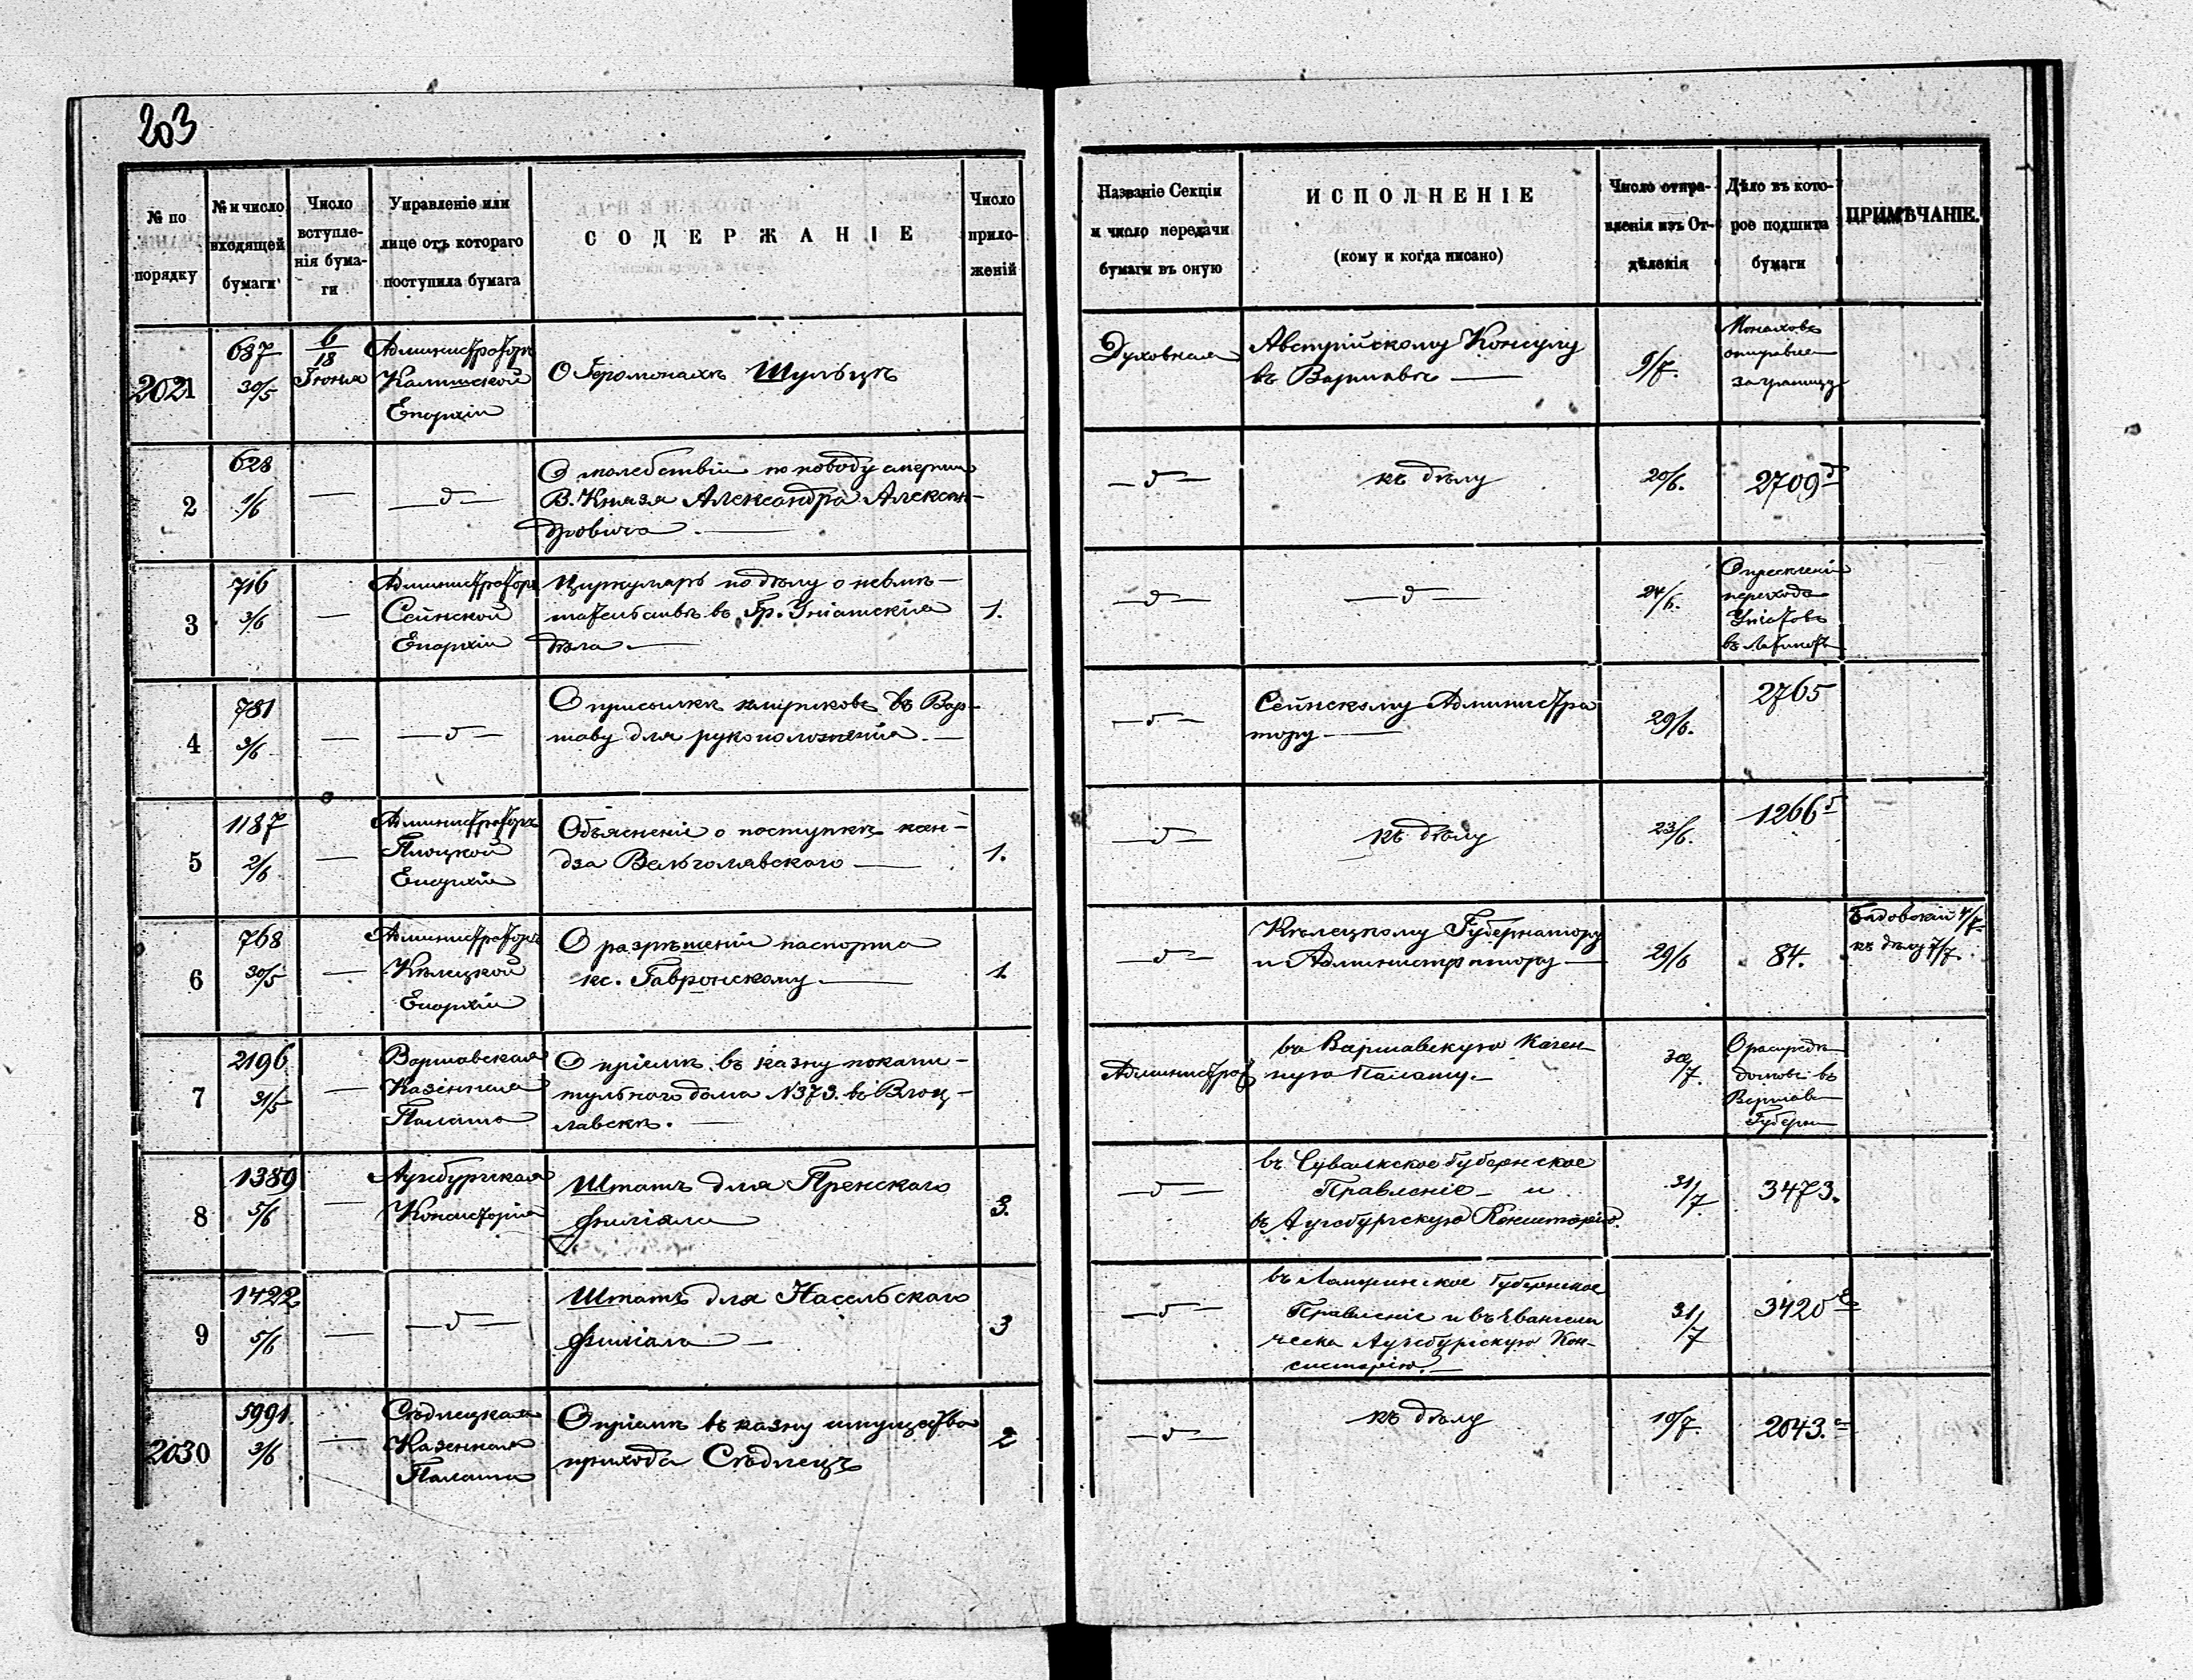 203
№ по порядку
№ и число входящей бумаги
Число вступле-нія бума-ги
Управленіе или лице отъ котораго поступила бумага
СОДЕРЖАНІЕ
Число прило-женій
Названіе Секціи и число передачи бумаги въ оную
ИСПОЛНЕНІЕ
(кому и когда писано)
Число отпра-вленія изъ От-дѣленія
Дѣло въ кото-рое подшита бумаги
ПРИМѢЧАНІЕ.
2021
687
30/5
6/18
Іюня
Администраторъ
Калишской
Епархіи
О Іеромонахѣ Шульцѣ
Духовная
Австрійскому Консулу
въ Варшавѣ
9/7.
Монаховъ
заграницу
2
628
1/6
О молебствіи по поводу смерти
В. Князя Александра Алексан-
дровича.
къ дѣлу
20/6.
2709
3
716
3/6
Администраторъ
Сейнской
Епархіи
Циркуляръ по дѣлу о невмѣ-
шательствѣ въ Гр. Уніатскія
дѣла.
1.
24/6.
О пресѣченіи
перехода
Уніатовъ
въ Латинст.
4
781
3/6
О присылкѣ клириковъ въ Вар-
шаву для рукоположенія.
Сейнскому Администра
тору
29/6.
2765
5
1187
2/6
Администраторъ
Плоцкой
Епархіи
Объясненіе о поступкѣ ксен-
дза Вельголявского
1.
къ дѣлу
23/6.
1266
6
768
30/5
Администраторъ
Кѣлецкой
Епархіи
О разрѣшеніи паспорта
кс. Гавронскому.
1.
Кѣлецкому Губернатору
и Администратору
29/6
84.
къ дѣлу 7/7.
7
2196
31/5
Варшавская
Казенная
Палата
О пріемѣ въ казну покапи-
тульнаго дома N 373. въ Влоц-
лавскѣ.
Администрат
въ Варшавскую Казен-
ную Палату.
30/7.
домовъ въ
Варшав
Губерн
8
1389
5/6
Аугсбургская
Консисторія
Штатъ для Пренскаго
филіяла
3.
въ Сувалкское Губернское
Правленіе и
въ Аугсбургскую Консисторію.
31/7
3473.
9
1422
5/6
Штатъ для Насельскаго
филіала
3
въ Ломжинское Губернское
Правленіе и въ Евангели
ческо Аугсбургскую Кон-
систорію.
31/7
3420
2030
5991
3/6
Сѣдлецкая
Казенная
Палата
О пріемѣ въ казну имущества
прихода Сѣдлецъ
2
къ дѣлу
19/7.
2043.